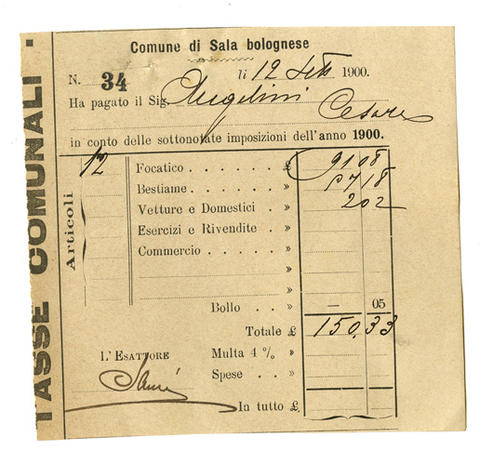 TASSE COMUNALI
Comune di Sala bolognese
N. 34 li 12 Sett 1900.
Ha pagato il Sig. Angelini Cesare
in conto delle sottonotate imposizioni dell'anno 1900.
Articoli 12
Focatico . . . . . . £ 91 08
Bestiame. . . . . . » 57 18
Vetture e Domestici . » 2 02
Esercizi e Rivendite . »
Commercio . . . . . »
»
Bollo . . » — 05
Totale £ 150,33
L'ESATTORE
Multa 4 % . »
Spese . . »
In tutto £